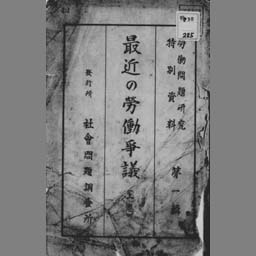 勞働問題研究
特別資料
第一輯
最近の勞働爭議
發行所
社會問題調査所